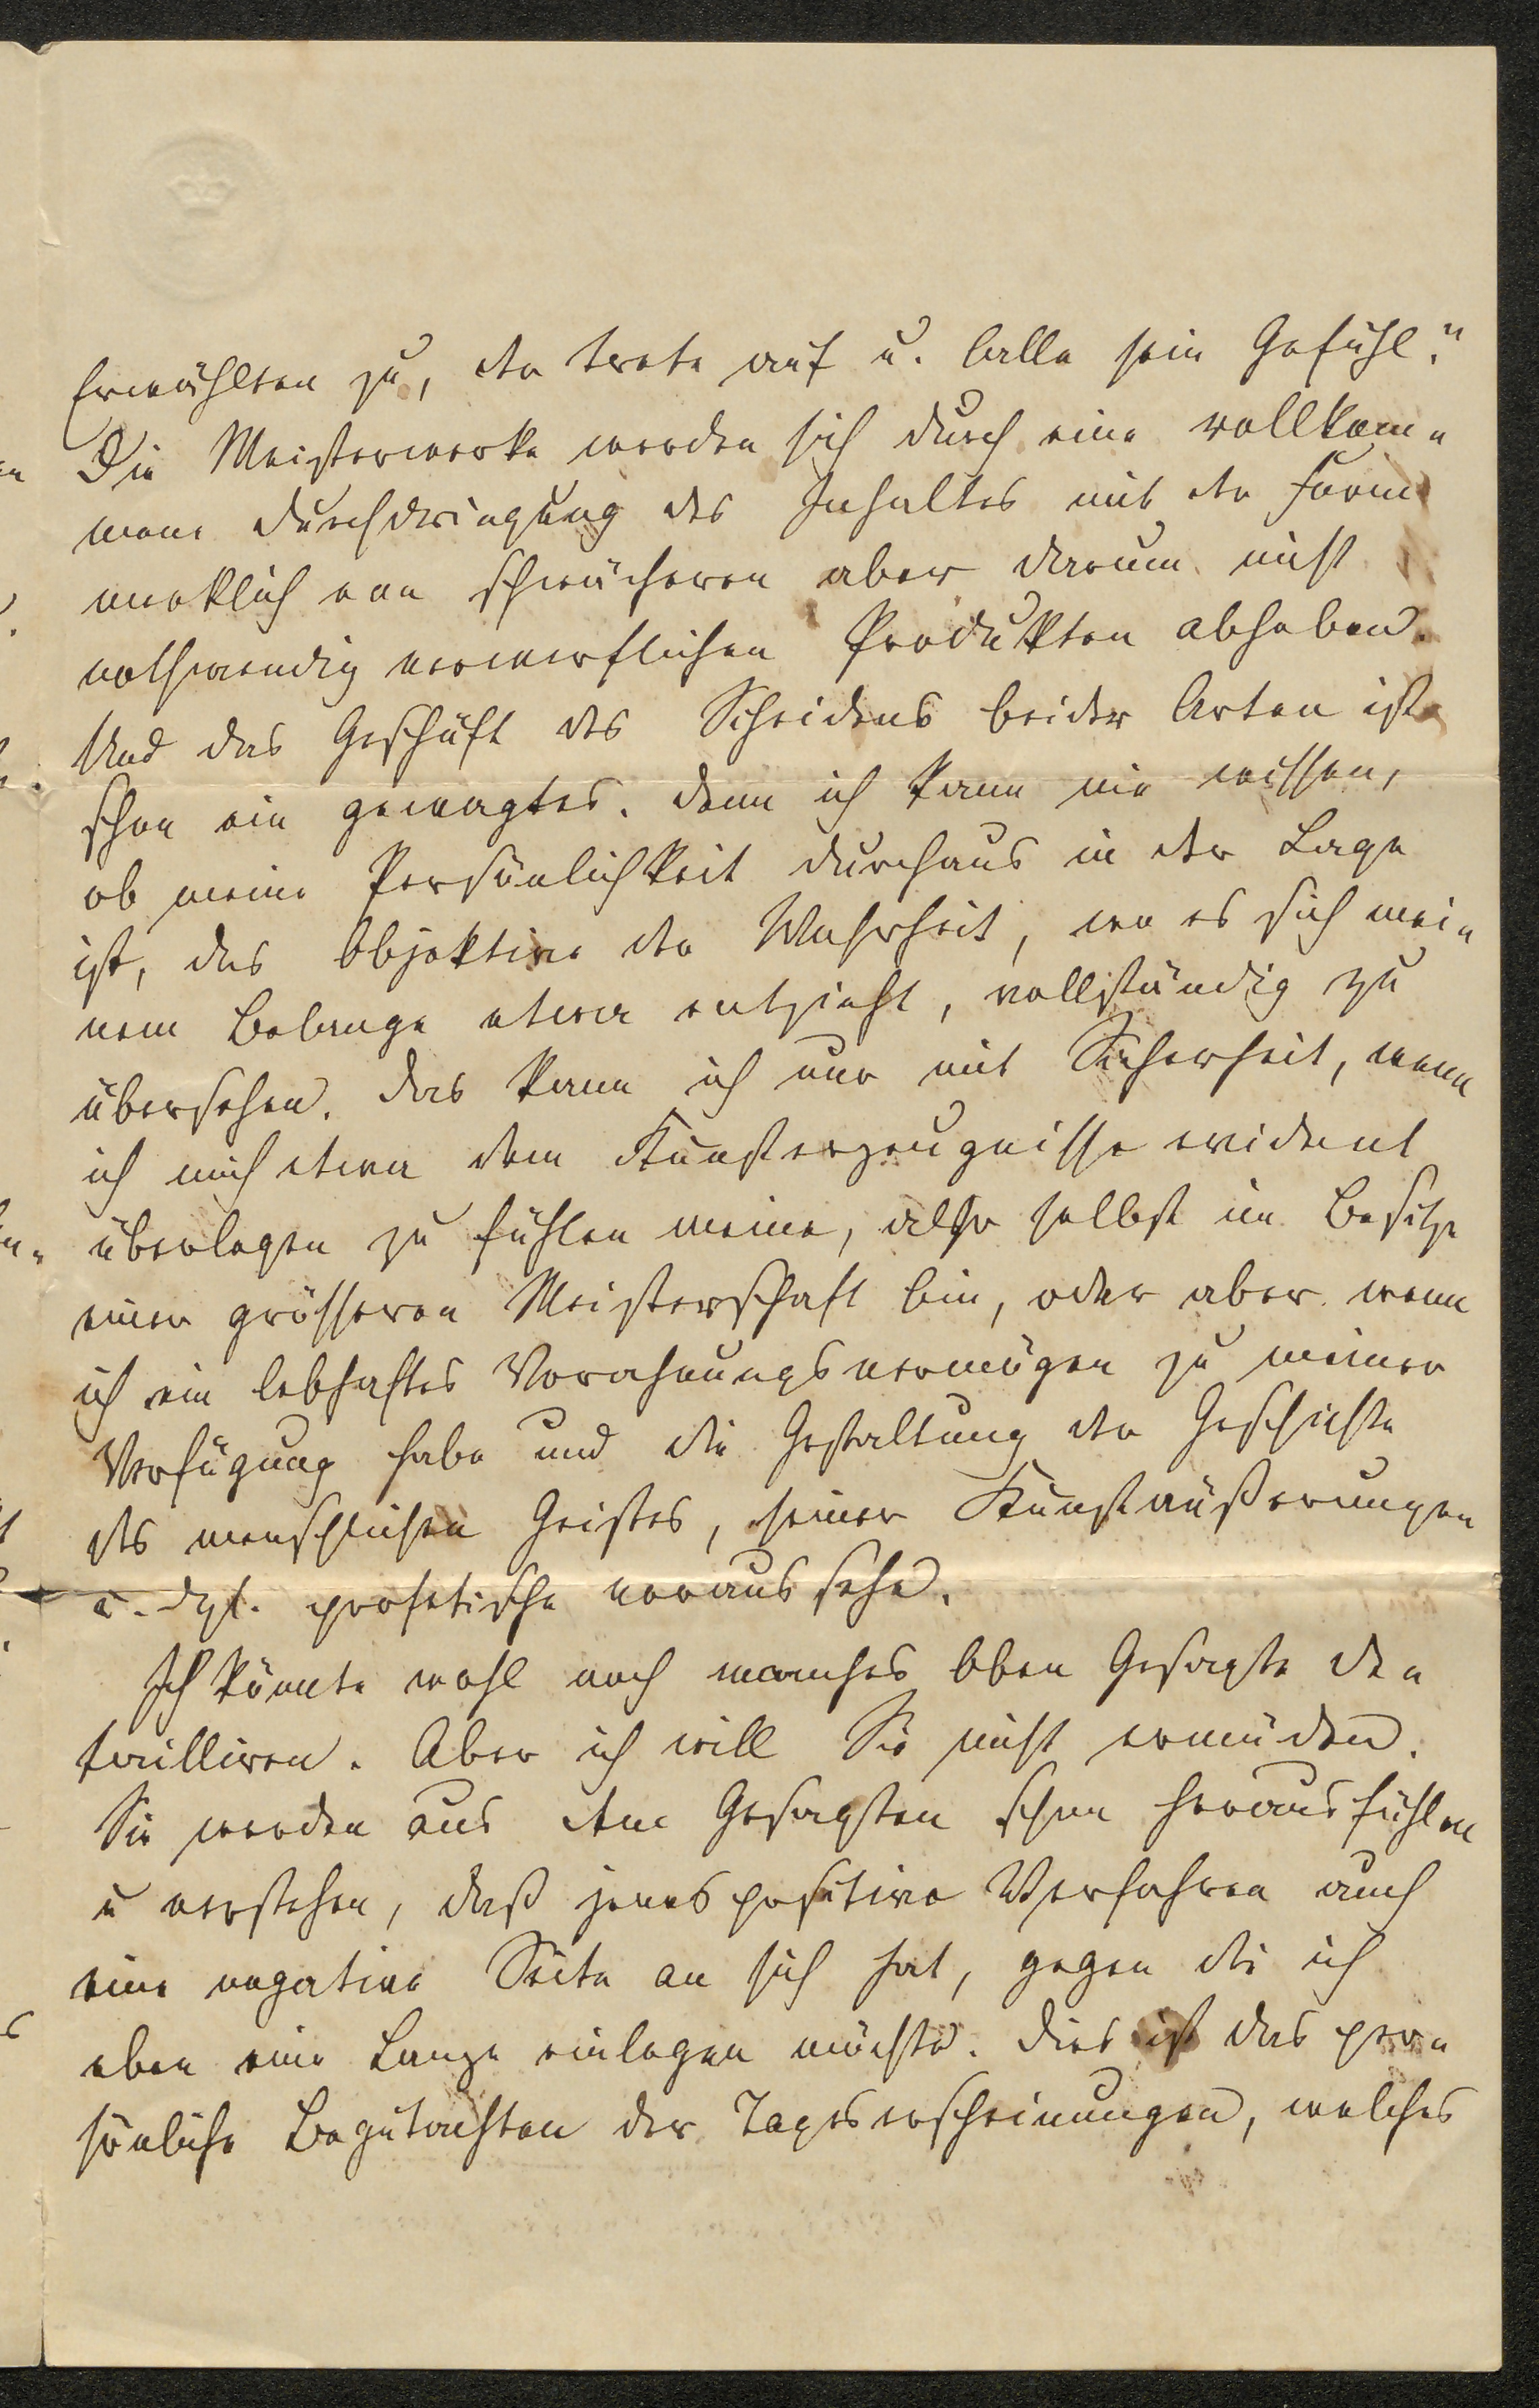 Erwählten zu, der trete auf u. lalle sein Gefühl."
Die Meisterwerke werden sich durch eine vollkom-
mene Durchdringung des Inhaltes mit der Form
merklich von schwächeren aber darum nicht
nothwendig verwerflichen Produkten abheben.
Und das Geschäft des Scheidens beider Arten ist
schon ein gewagtes. Denn ich kann nie wissen,
ob meine Persönlichkeit durchaus in der Lage
ist, das Objektive der Wahrheit, wo es sich mei-
nem Belange etwa entzieht, vollständig zu
übersehen. Das kann ich nur mit Sicherheit, wenn
ich mich etwa dem Kunsterzeugnisse evident
überlegen zu fühlen meine, also selbst im Besitze
einer grösseren Meisterschaft bin, oder aber wenn
ich ein lebhaftes Vorahnungsvermögen zu meiner
Verfügung habe und die Gestaltung der Geschichte
des menschlichen Geistes, seiner Kunstäußerungen
u. dgl. profetische voraussehe.
Ich könnte wohl noch manches Oben Gesagte de-
tailliren. Aber ich will Sie nicht ermüden.
Sie werden aus dem Gesagten schon herausfühlen
u verstehen, daß jenes positive Verfahren auch
eine negative Seite an sich hat, gegen die ich
eben eine Lanze einlegen möchte. Dies ist das per-
sönliche Begutachten der Tageserscheinungen, welches